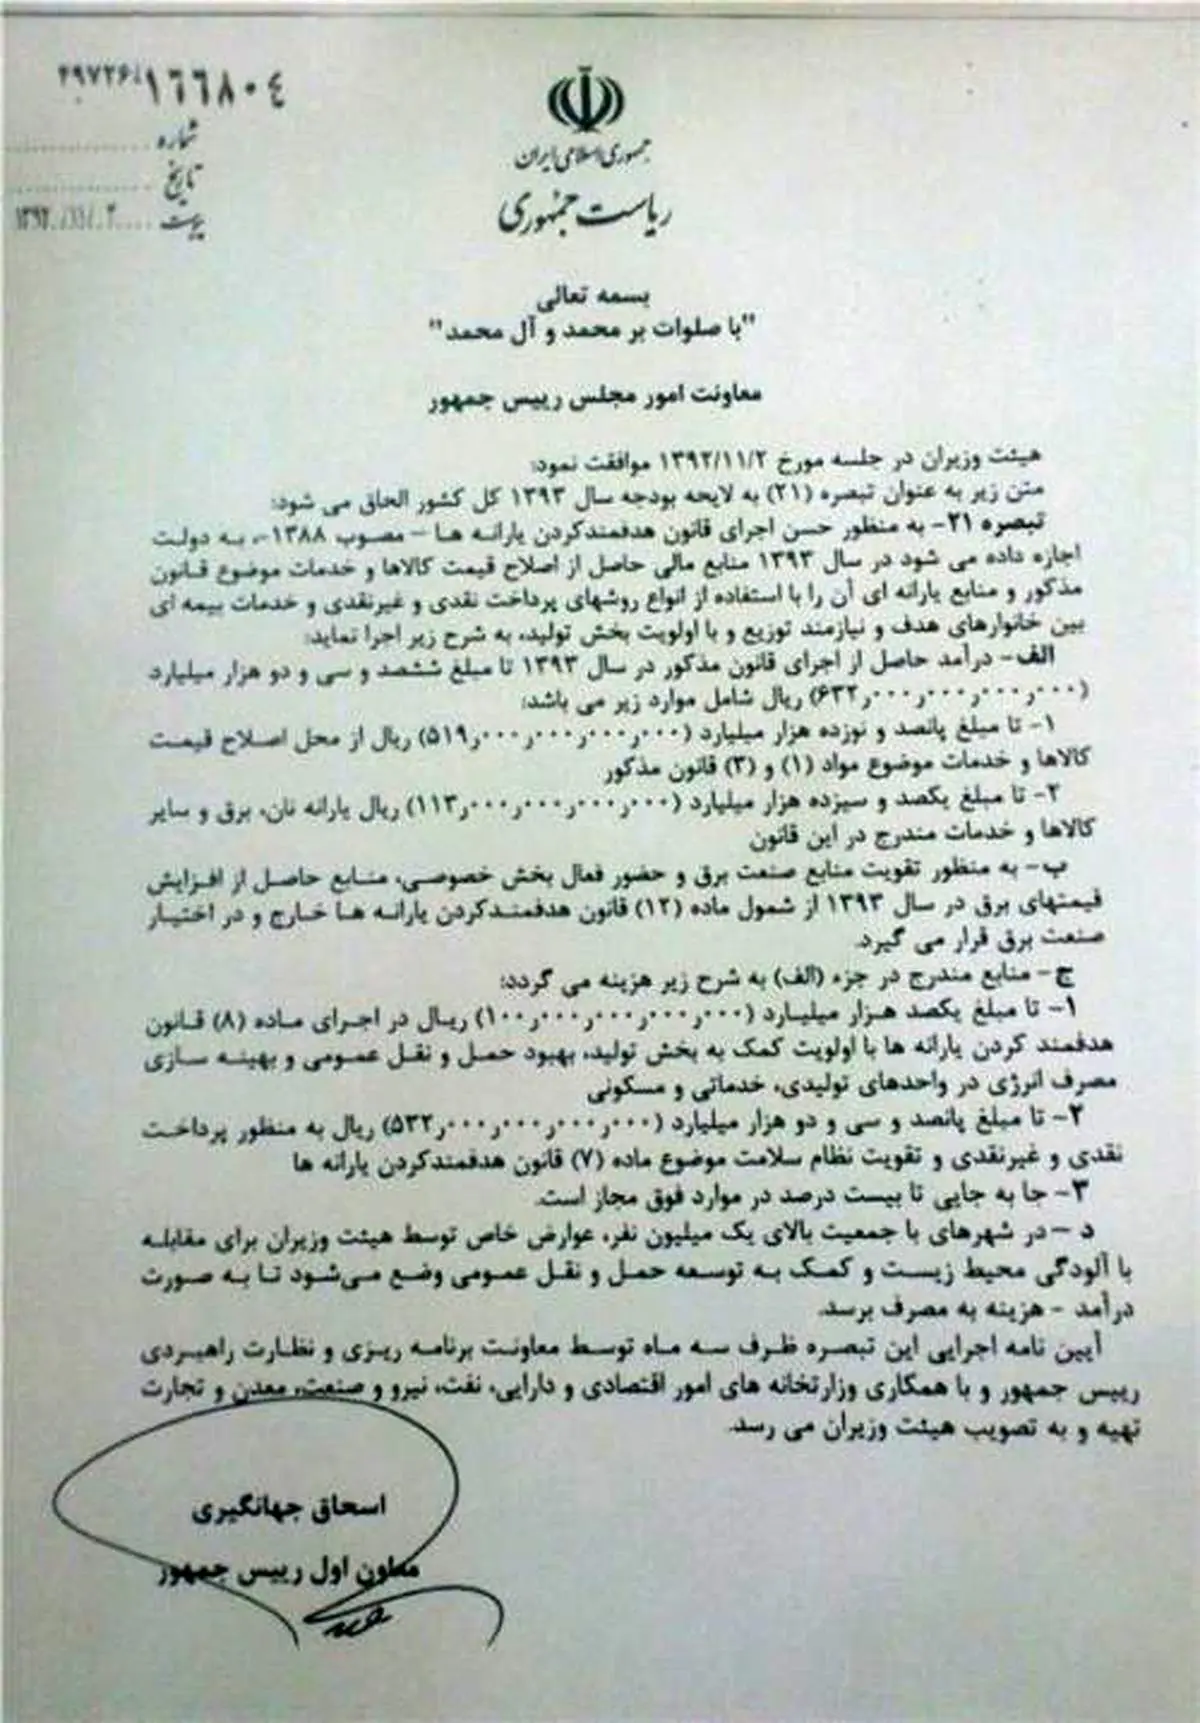 ۱۶۶۸۰۴/۴۹۷۲۶
شماره
تاریخ
پیوست
جمهوری اسلامی ایران
ریاست جمهوری
بسمه تعالی
"با صلوات بر محمد و آل محمد"
معاونت امور مجلس رییس جمهور
هیئت وزیران در جلسه مورخ ۱۳۹۲/۱۱/۲ موافقت نمود:
متن زیر به عنوان تبصره (۲۱) به لایحه بودجه سال ۱۳۹۳ کل کشور الحاق می شود:
تبصره ۲۱- به منظور حسن اجرای قانون هدفمندکردن یارانه ها – مصوب ۱۳۸۸-، به دولت
اجازه داده می شود در سال ۱۳۹۳ منابع مالی حاصل از اصلاح قیمت کالاها و خدمات موضوع قانون
مذکور و منابع یارانه ای آن را با استفاده از انواع روشهای پرداخت نقدی و غیرنقدی و خدمات بیمه ای
بین خانوارهای هدف و نیازمند توزیع و با اولویت بخش تولید، به شرح زیر اجرا نماید:
الف- درآمد حاصل از اجرای قانون مذکور در سال ۱۳۹۳ تا مبلغ ششصد و سی و دو هزار میلیارد
(۶۳۲٫۰۰۰٫۰۰۰٫۰۰۰٫۰۰۰) ریال شامل موارد زیر می باشد:
۱- تا مبلغ پانصد و نوزده هزار میلیارد (۵۱۹٫۰۰۰٫۰۰۰٫۰۰۰٫۰۰۰) ریال از محل اصلاح قیمت
کالاها و خدمات موضوع مواد (۱) و (۳) قانون مذکور
۲- تا مبلغ یکصد و سیزده هزار میلیارد (۱۱۳٫۰۰۰٫۰۰۰٫۰۰۰٫۰۰۰) ریال یارانه نان، برق و سایر
کالاها و خدمات مندرج در این قانون
ب- به منظور تقویت منابع صنعت برق و حضور فعال بخش خصوصی، منابع حاصل از افزایش
قیمتهای برق در سال ۱۳۹۳ از شمول ماده (۱۲) قانون هدفمندکردن یارانه ها خارج و در اختیار
صنعت برق قرار می گیرد.
ج- منابع مندرج در جزء (الف) به شرح زیر هزینه می گردد:
۱- تا مبلغ یکصد هزار میلیارد (۱۰۰٫۰۰۰٫۰۰۰٫۰۰۰٫۰۰۰) ریال در اجرای ماده (۸) قانون
هدفمند کردن یارانه ها با اولویت کمک به بخش تولید، بهبود حمل و نقل عمومی و بهینه سازی
مصرف انرژی در واحدهای تولیدی، خدماتی و مسکونی
۲- تا مبلغ پانصد و سی و دو هزار میلیارد (۵۳۲٫۰۰۰٫۰۰۰٫۰۰۰٫۰۰۰) ریال به منظور پرداخت
نقدی و غیرنقدی و تقویت نظام سلامت موضوع ماده (۷) قانون هدفمندکردن یارانه ها
۳- جا به جایی تا بیست درصد در موارد فوق مجاز است.
د – در شهرهای با جمعیت بالای یک میلیون نفر، عوارض خاص توسط هیئت وزیران برای مقابله
با آلودگی محیط زیست و کمک به توسعه حمل و نقل عمومی وضع می‌شود تا به صورت
درآمد - هزینه به مصرف برسد.
آیین نامه اجرایی این تبصره ظرف سه ماه توسط معاونت برنامه ریزی و نظارت راهبردی
رییس جمهور و با همکاری وزارتخانه های امور اقتصادی و دارایی، نفت، نیرو و صنعت، معدن و تجارت
تهیه و به تصویب هیئت وزیران می رسد.
اسحاق جهانگیری
معاون اول رییس جمهور